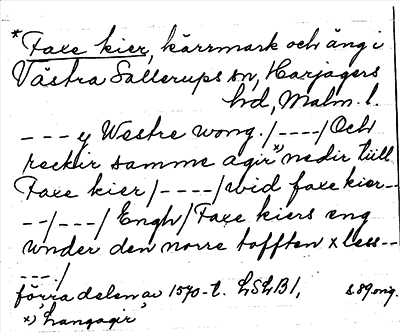 *Faxe kier, kärrmark och äng i
Västra Sallerups sn, Harjagers
hd, Malm. l.
--- y Westre wong./----/Och
reckir samme agir x) nedir tiill
Faxe kier/----/wid faxe kier--
--/---/Engh/Faxe kiers eng
wnder den norre tofften x less--
---/
förra delen av 1570-t. LSLB1, s.89 omg.
x) Langagir